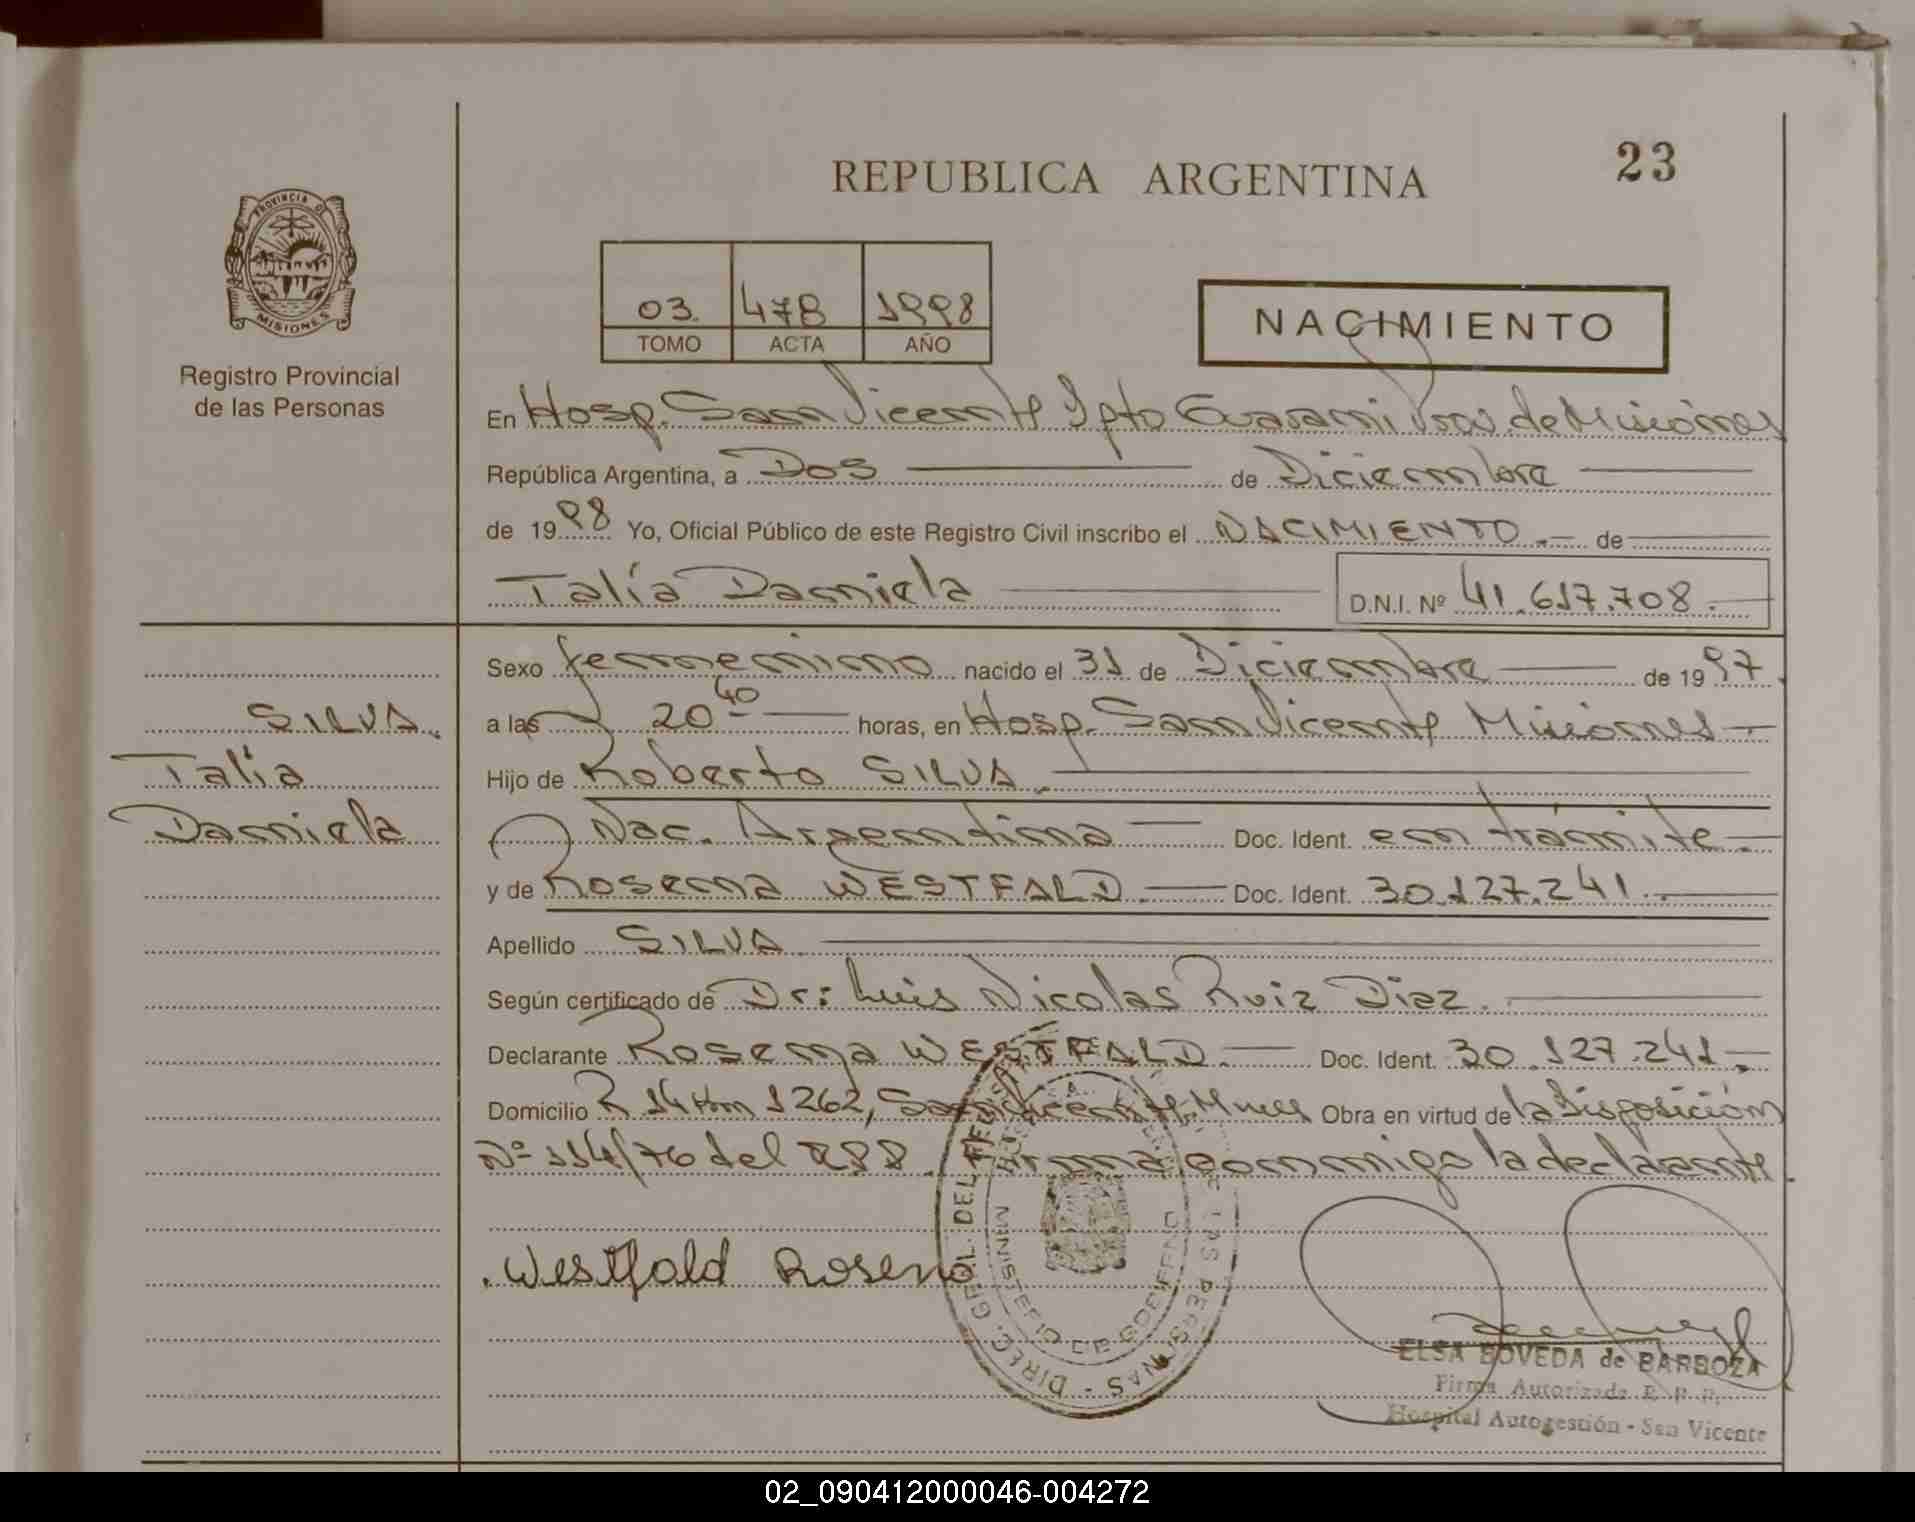 23
REPUBLICA ARGENTINA
PROVINCIA DE
MISIONES
Registro Provincial
de las Personas
03. 478 1998
TOMO ACTA AÑO
NACIMIENTO
En Hosp. San Vicente Dpto Guaraní Prov. de Misiones
República Argentina, a Dos de Diciembre
de 1998 Yo, Oficial Público de este Registro Civil inscribo el NACIMIENTO.- de
Talía Daniela D.N.I. Nº 41.617.708.
Sexo femenino nacido el 31 de Diciembre de 1997.
a las 20 40 horas, en Hosp. San Vicente Misiones
Hijo de Roberto SILVA.
Nac. Argentina Doc. Ident. en trámite.
y de Rosena WESTFALD. Doc. Ident. 30.127.241.
Apellido SILVA
Según certificado de Dr: Luis Nicolas Ruiz Diaz.
Declarante Rosena WESTFALD. Doc. Ident. 30.127.241.
Domicilio R 14 Km 1262, San Vicente, Mnes Obra en virtud de la Disposición
Nº 114/76 del R.P.P. Firma conmigo la declarante.
SILVA.
Talía
Daniela
Westfald Rosena
DIREC. GRAL. DEL REG. DE LAS PERSONAS - MINISTERIO DE GOBIERNO
ELSA BOVEDA de BARBOZA
Firma Autorizada R. P. P.
Hospital Autogestión - San Vicente
02_090412000046-004272